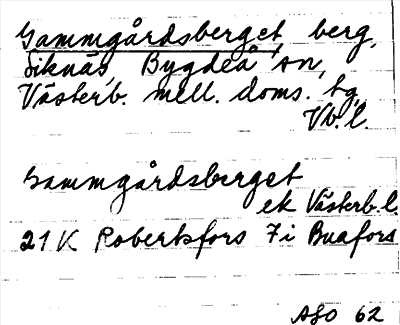 Gammgårdsberget berg,
Siknäs, Bygdeå sn,
Västerb. mell. doms. tg,
Vb. l.
Gammgårdsberget
ek Västerb. l.
21 K Robertsfors 7 i Buafors
ASO 62